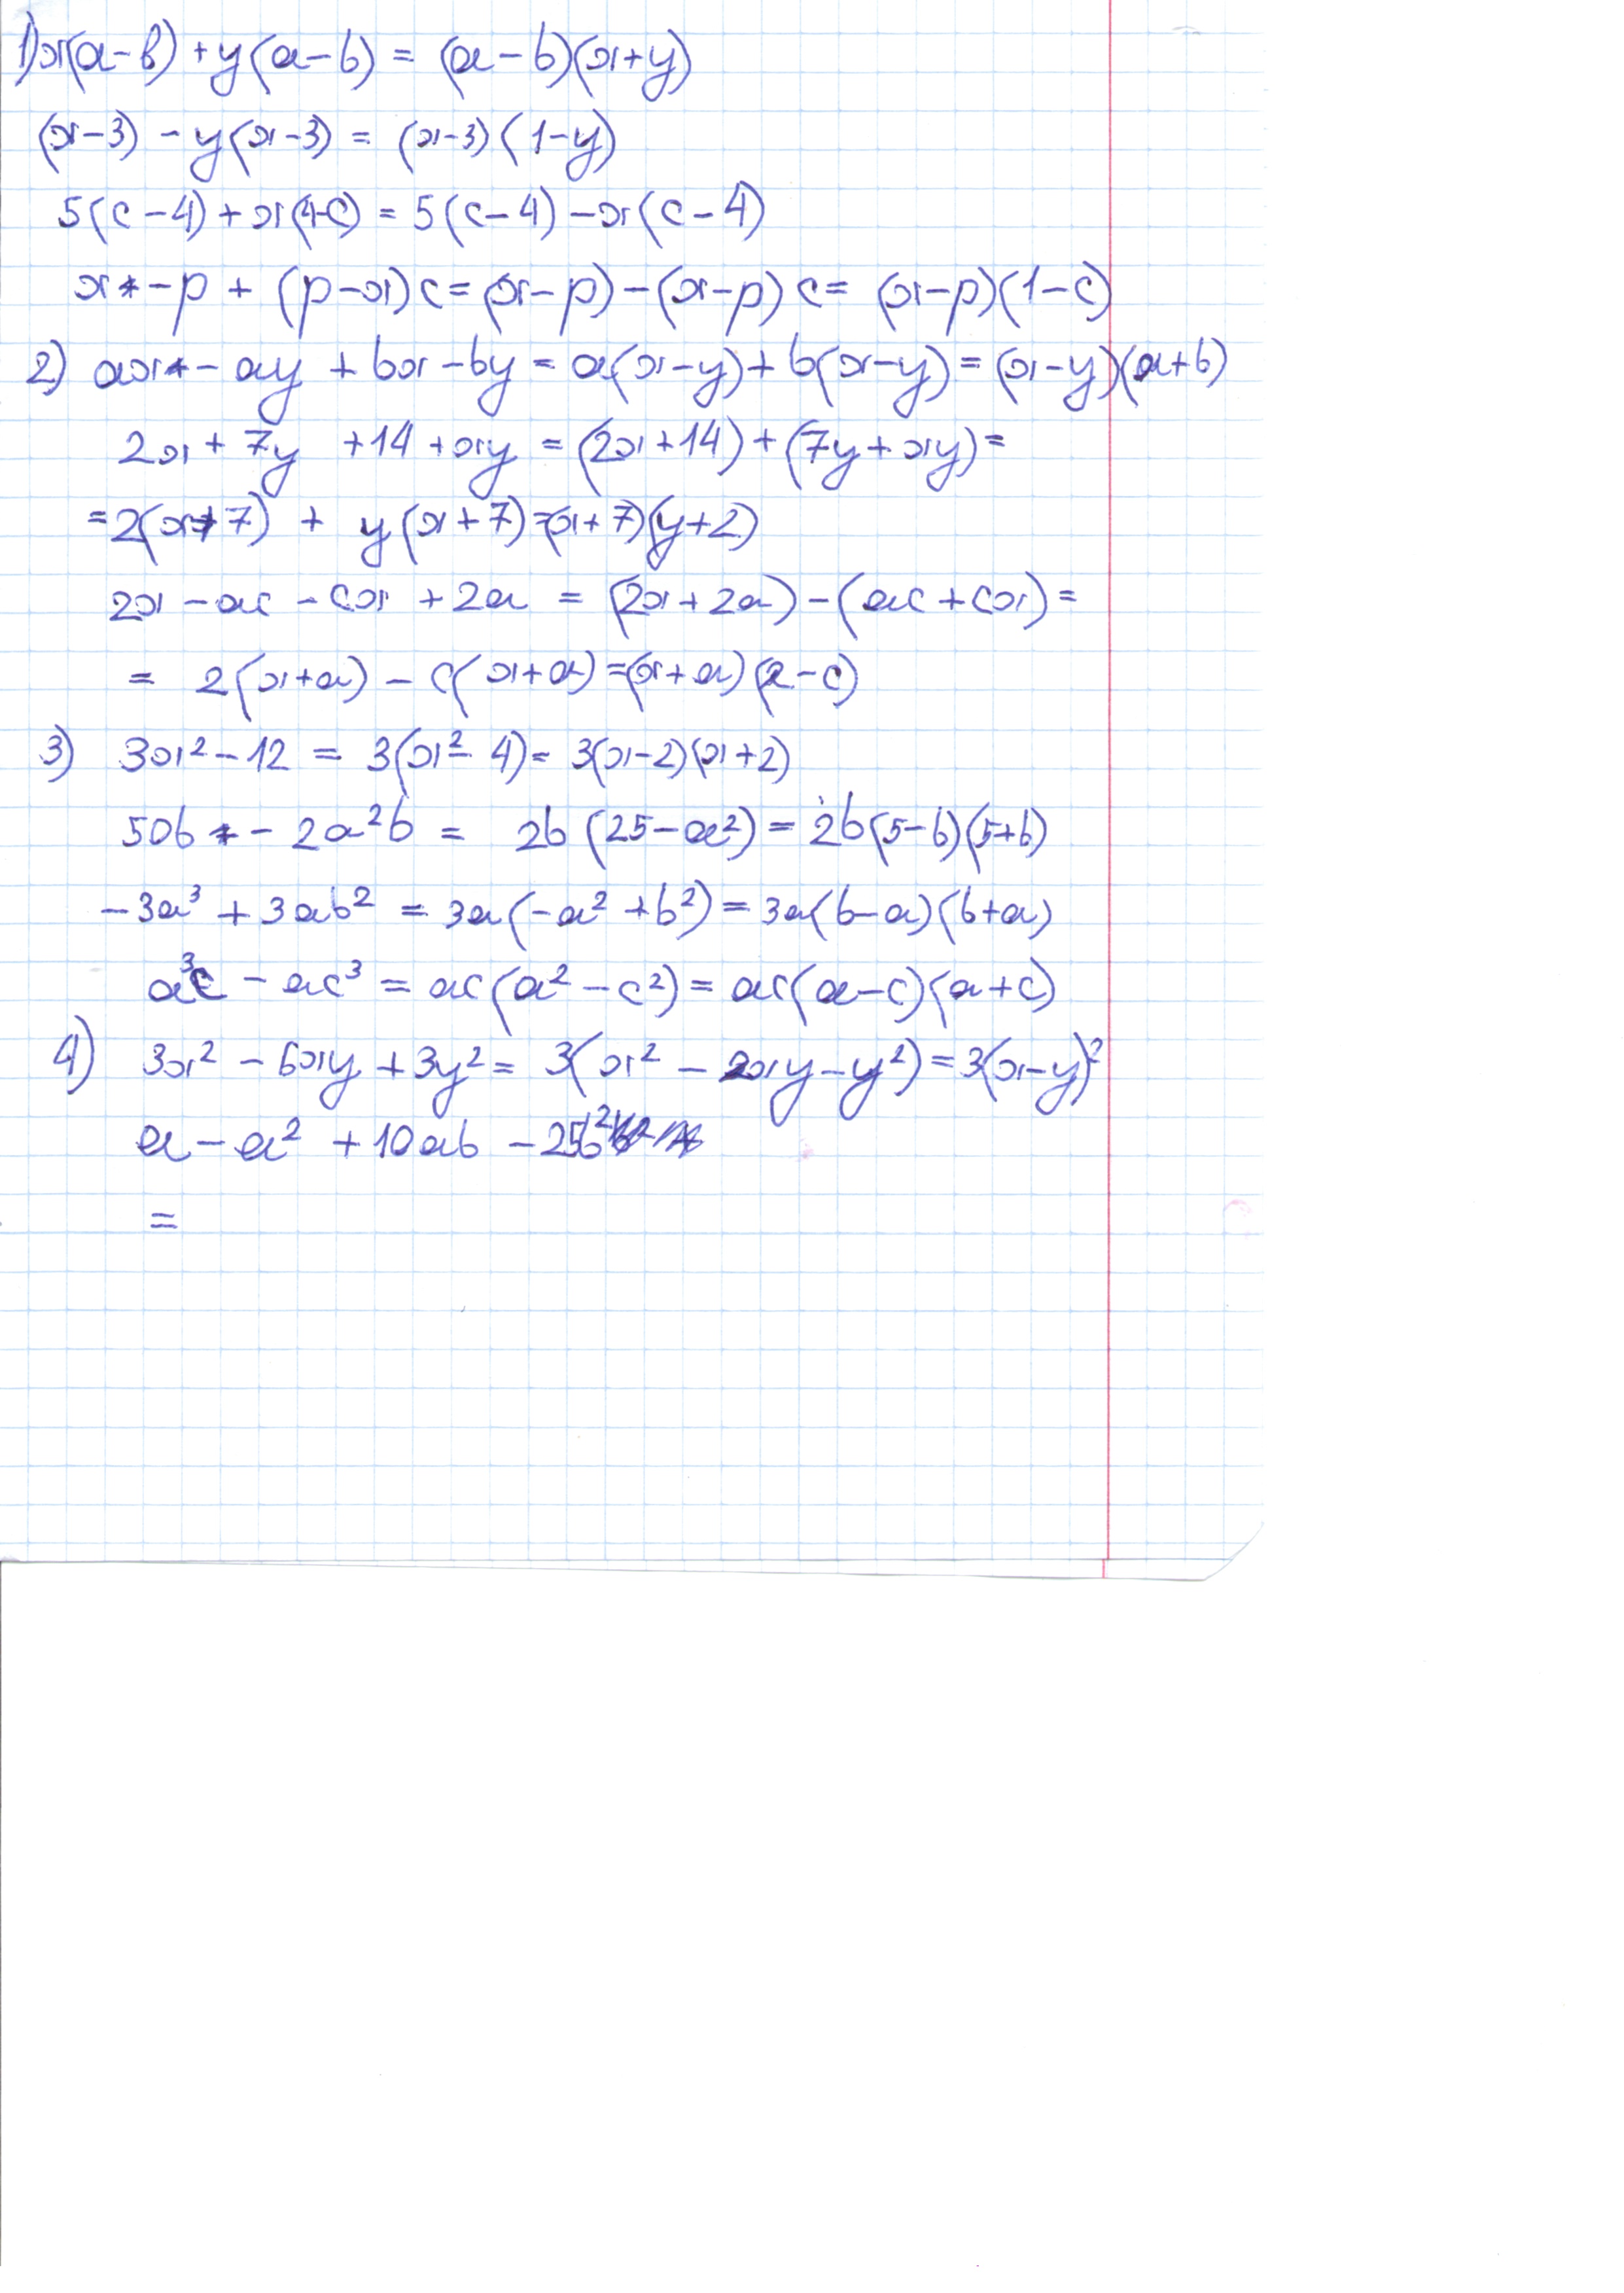 1) x(a-b) + y(a-b) = (a-b)(x+y)
(x-3) - y(x-3) = (x-3)(1-y)
5(c-4) + x(4-c) = 5(c-4) - x(c-4)
x - p + (p-x)c = (x-p) - (x-p)c = (x-p)(1-c)
2) ax - ay + bx - by = a(x-y) + b(x-y) = (x-y)(a+b)
2x + 7y + 14 + xy = (2x+14) + (7y+xy) =
= 2(x+7) + y(x+7) = (x+7)(y+2)
2x - ac - cx + 2a = (2x+2a) - (ac+cx) =
= 2(x+a) - c(x+a) = (x+a)(2-c)
3) 3x² - 12 = 3(x² - 4) = 3(x-2)(x+2)
50b - 2a²b = 2b(25-a²) = 2b(5-b)(5+b)
-3a³ + 3ab² = 3a(-a²+b²) = 3a(b-a)(b+a)
a³c - ac³ = ac(a²-c²) = ac(a-c)(a+c)
4) 3x² - 6xy + 3y² = 3(x² - 2xy - y²) = 3(x-y)²
a - a² + 10ab - 25b²
=